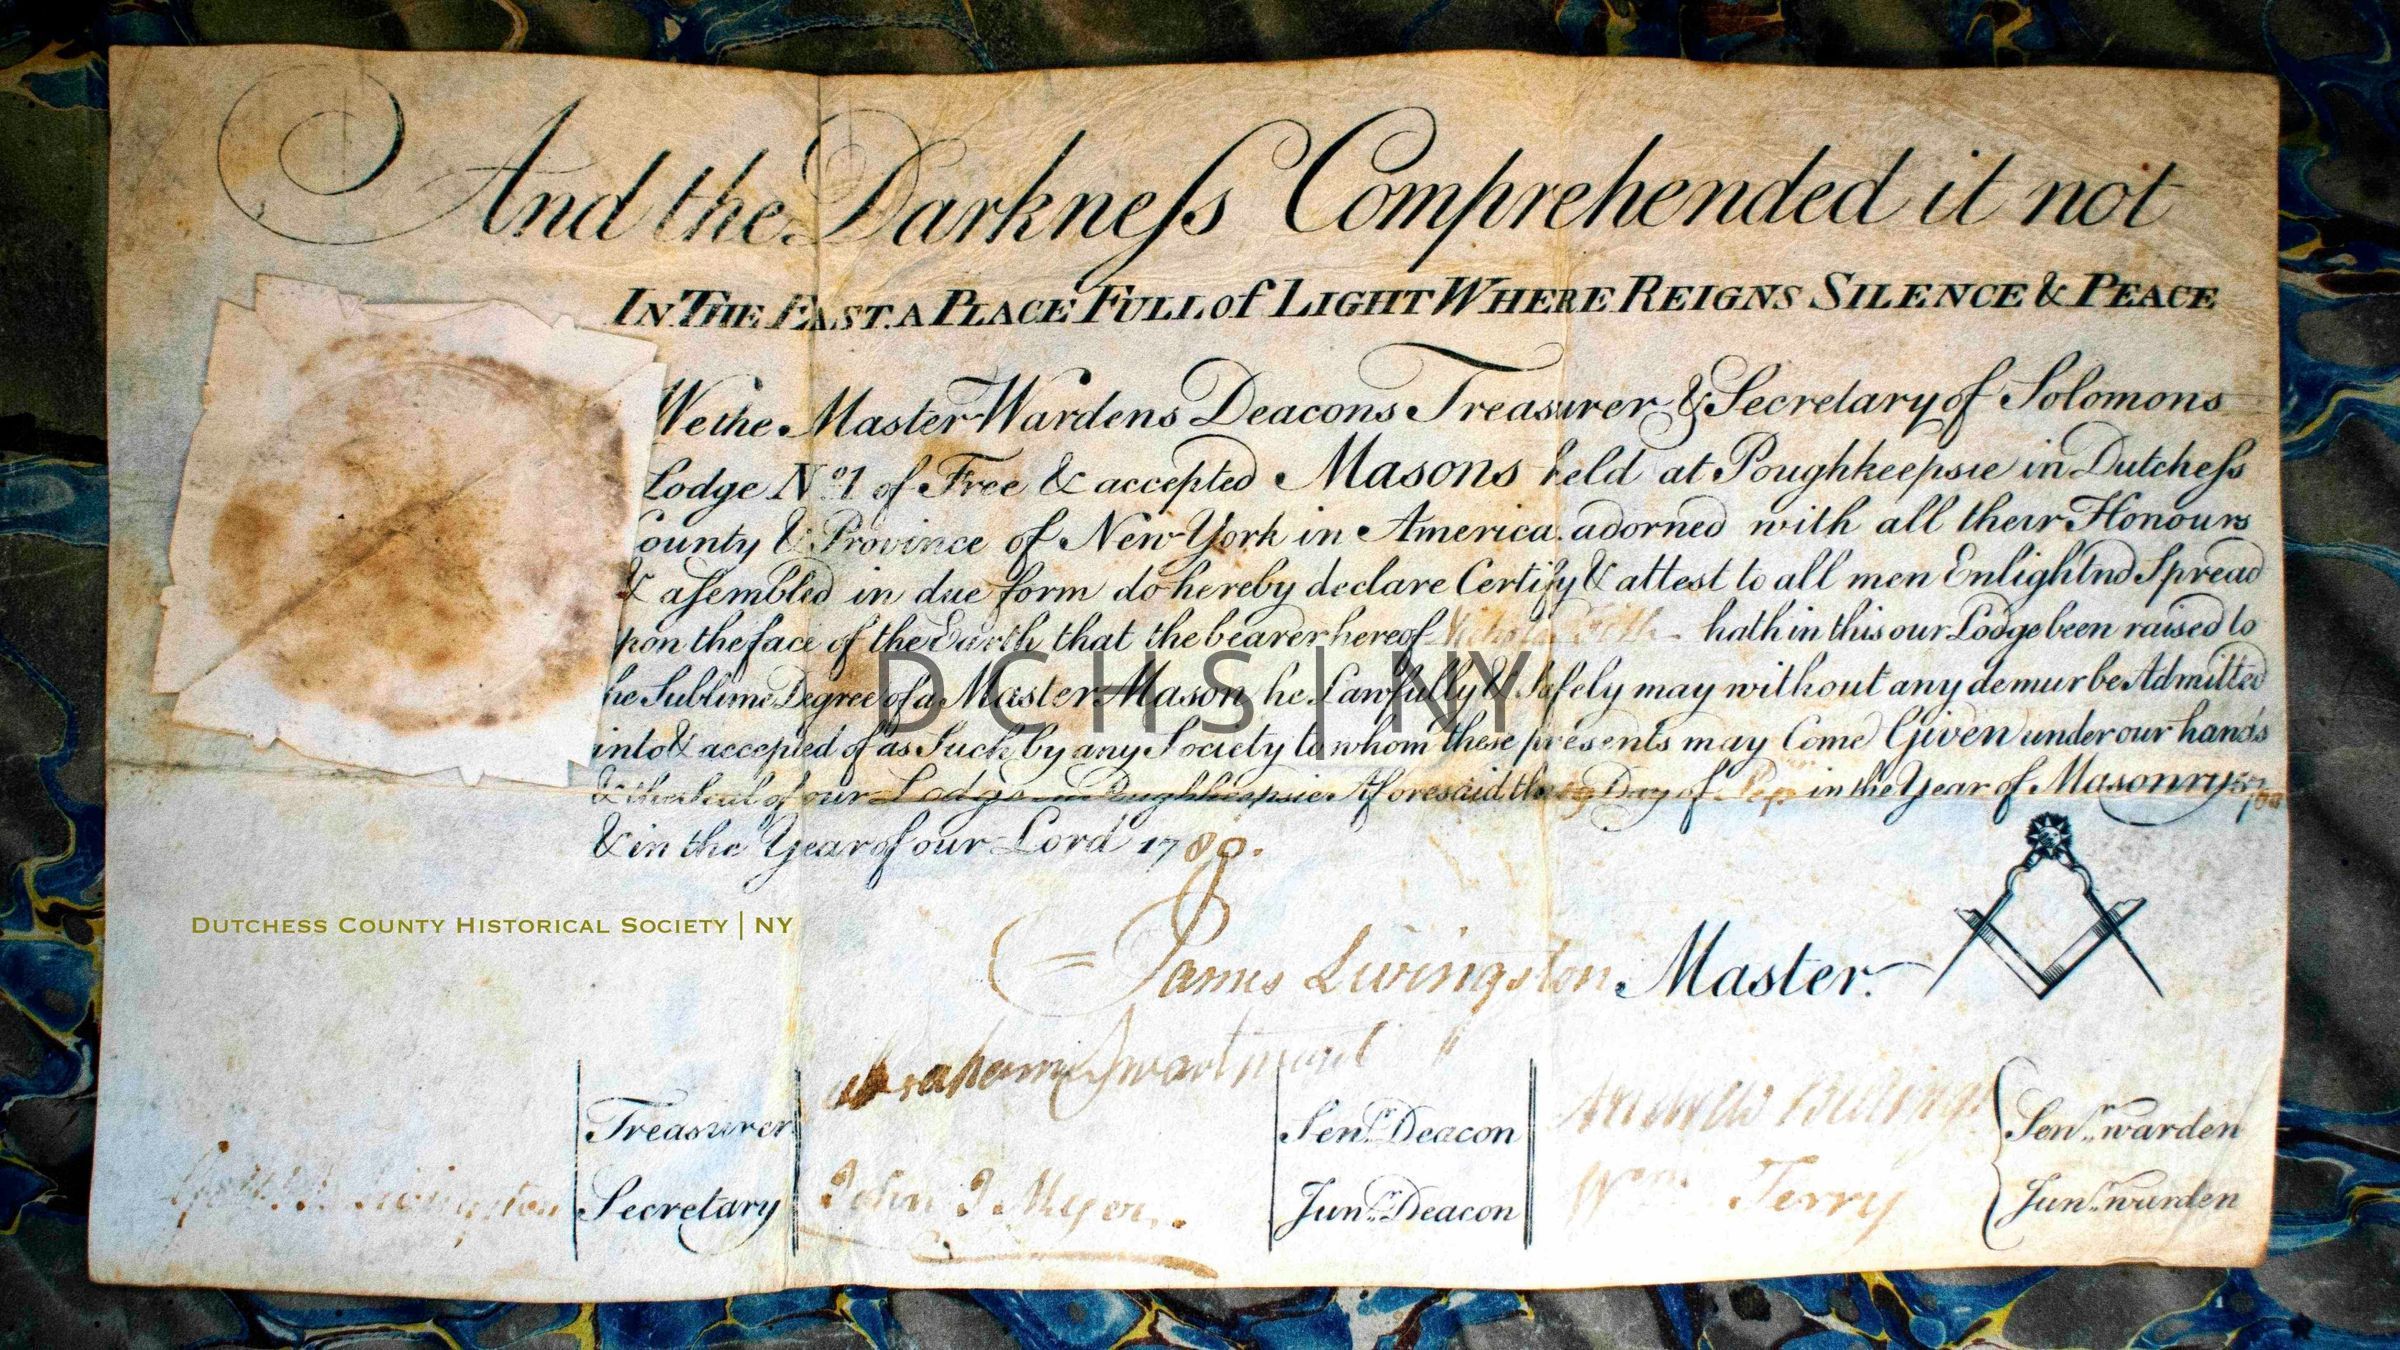 And the Darkneſs Comprehended it not
IN THE EAST. A PLACE FULL of LIGHT WHERE REIGNS SILENCE & PEACE
We the Master Wardens Deacons Treasurer & Secretary of Solomons
Lodge No. 1 of Free & accepted Masons held at Poughkeepsie in Dutcheſs
ounty & Province of New-York in America. adorned with all their Honours
& aſsembled in due form do hereby declare Certify & attest to all men Enlightnd Spread
pon the face of the Earth that the bearer hereof hath in this our Lodge been raised to
he Sublime Degree of a Master Mason he Lawfully & Safely may without any demur be Admitted
into & accepted of as Such by any Society to whom these presents may Come Given under our hands
& the Seal of our Lodge in Poughkeepsie Aforesaid the Day of Sep in the Year of Masonry
& in the Year of our Lord 1789.
DUTCHESS COUNTY HISTORICAL SOCIETY | NY
DCHS | NY
James Livingston Master.
Abraham Swartwout
Andrew Billings
Treasurer
Senr. Deacon
Senr. warden
Livingston Secretary
John J. Myer
Junr. Deacon
Wm. Terry
Junr. warden